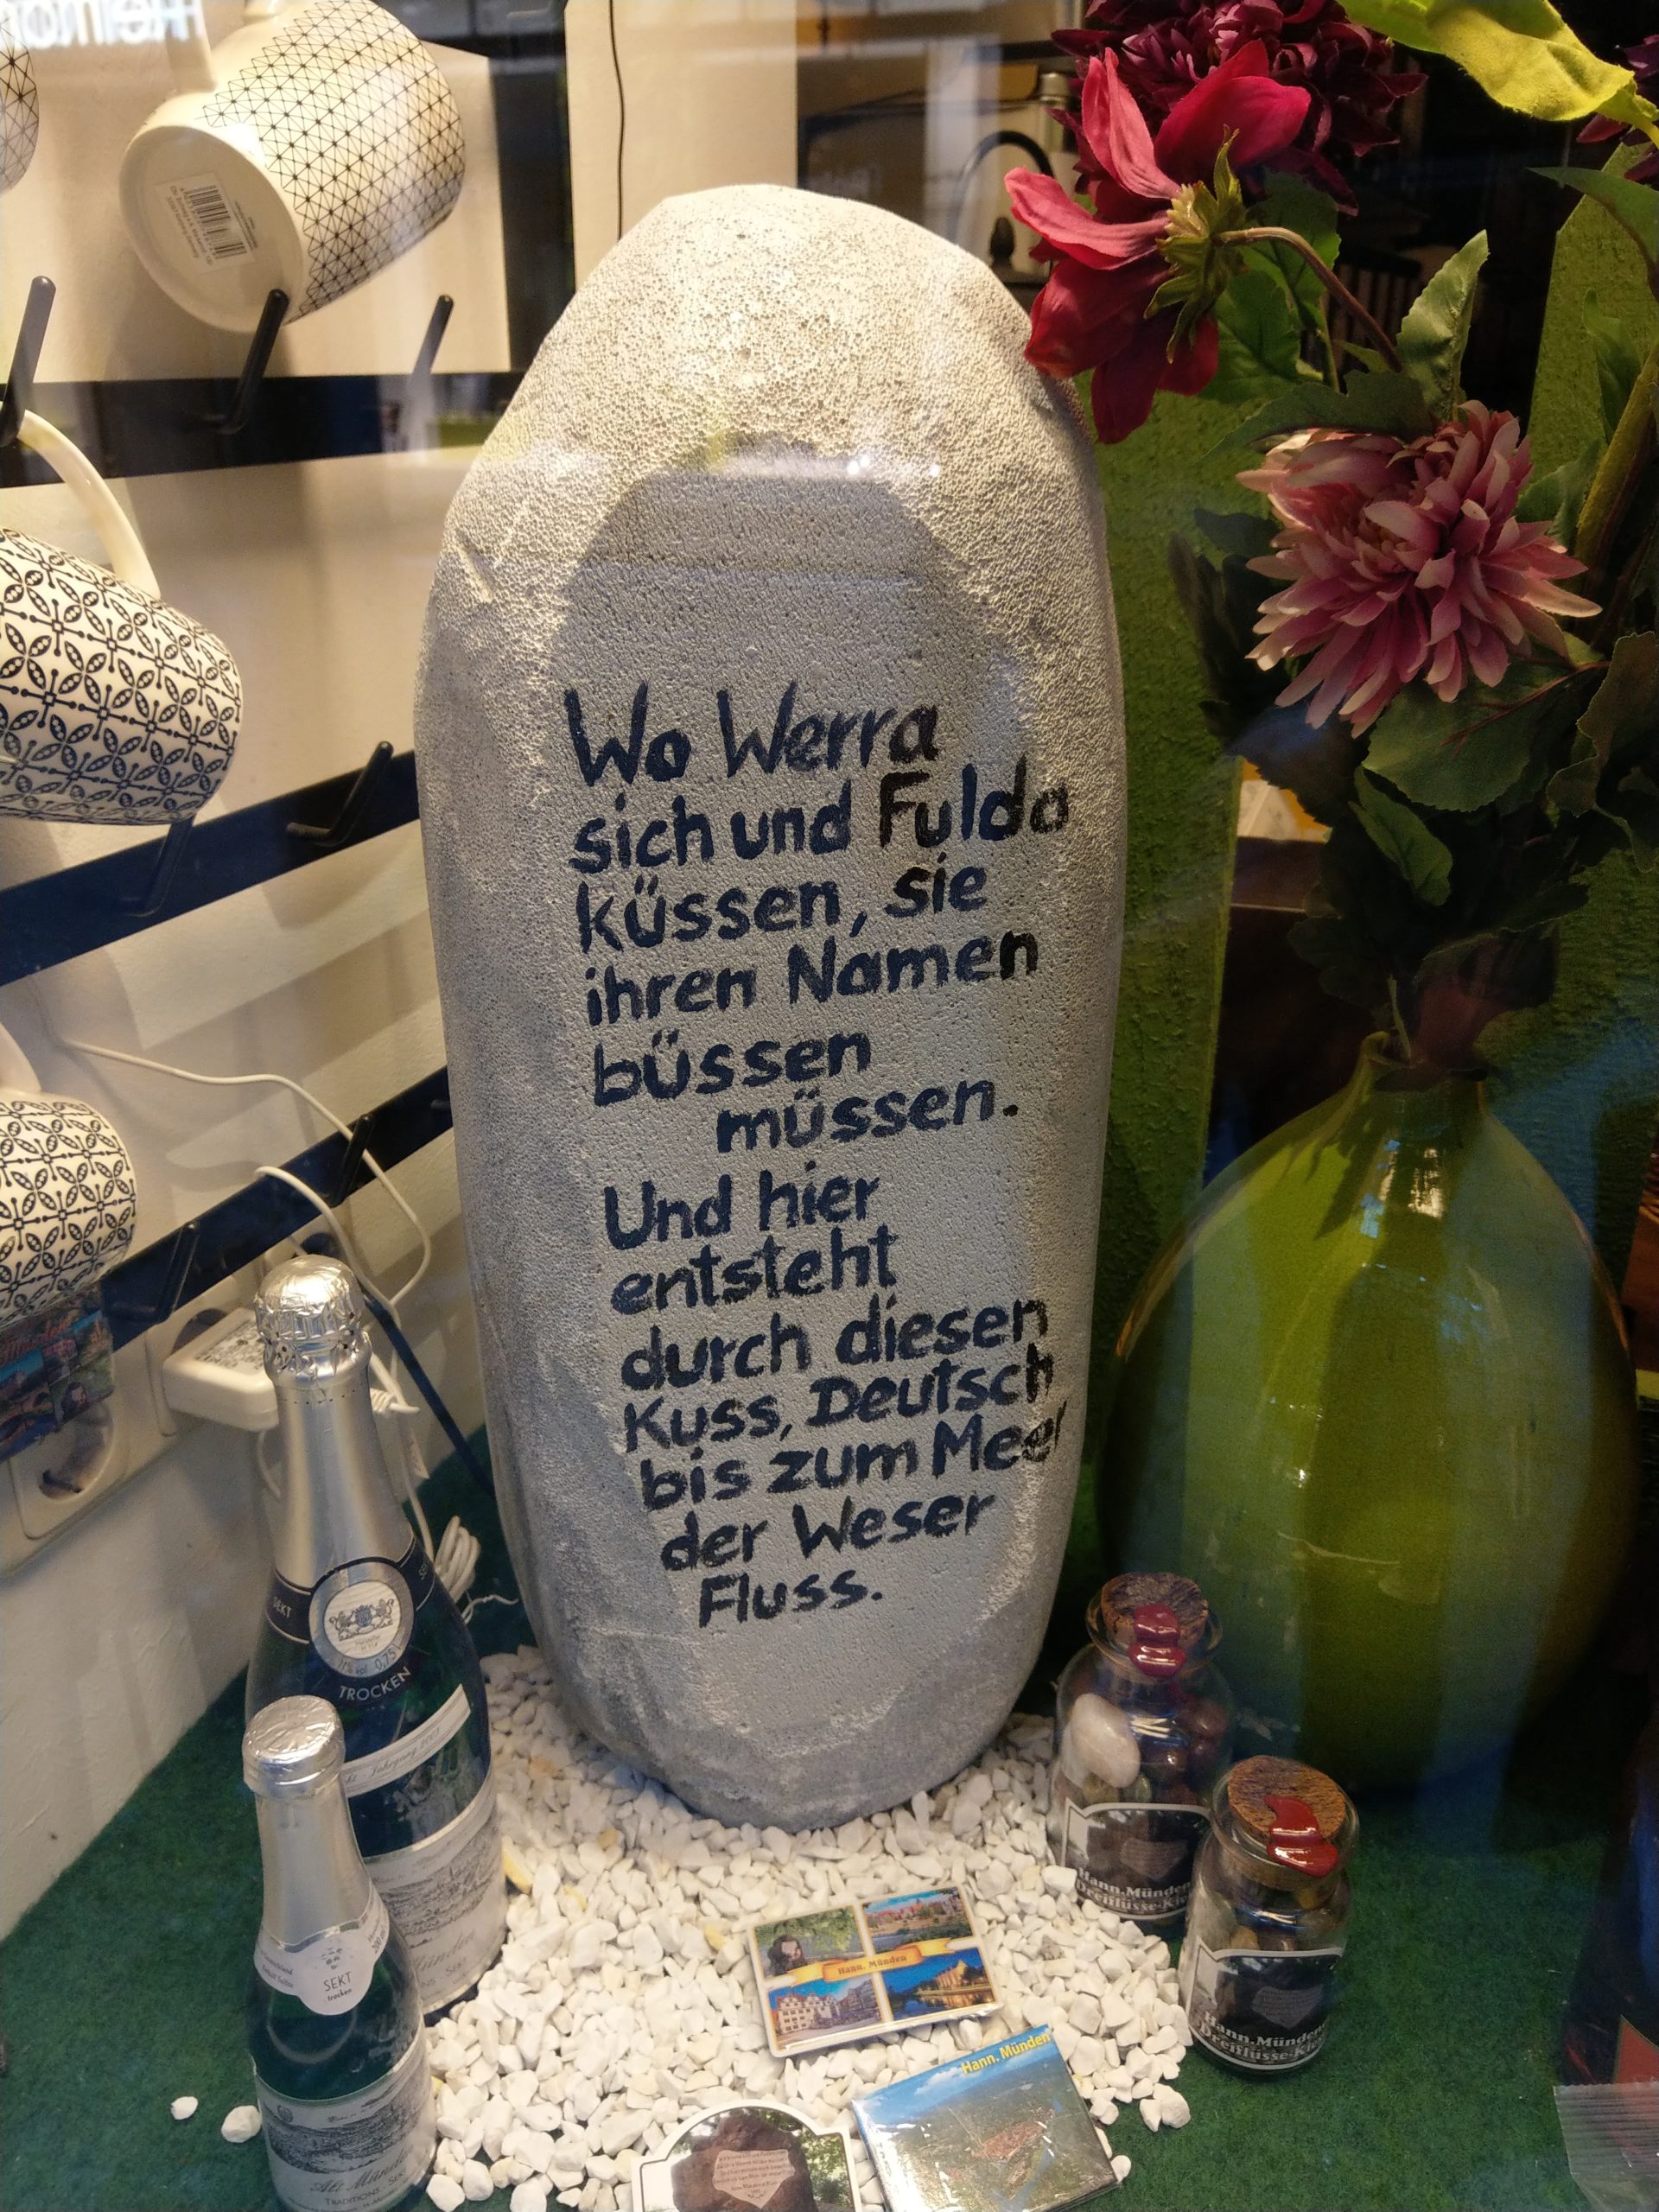 Wo Werra
sich und Fulda
küssen, sie
ihren Namen
büssen
müssen.
Und hier
entsteht
durch diesen
Kuss, Deutsch
bis zum Meer
der Weser
Fluss.
SEKT
0,75 l
TROCKEN
Jahrgang
SEKT
trocken
Alt Münden
TRADITIONS
Hann. Münden
Hann. Münden
Hann.Münden
Dreiflüsse-Kie
Hann.Münden
Dreiflüsse-Kie